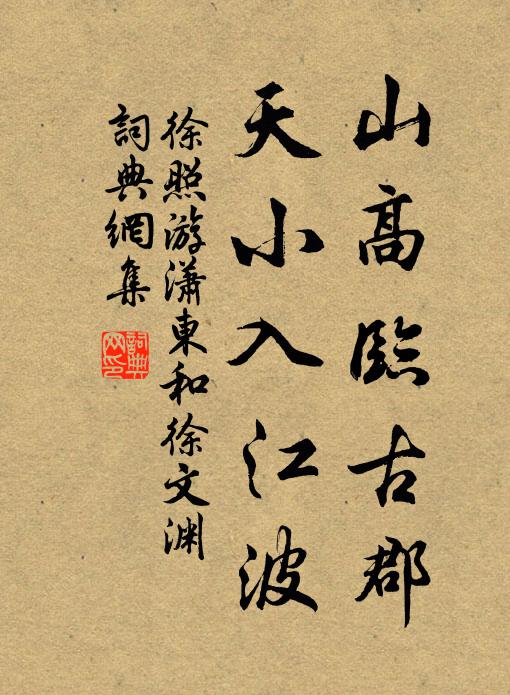 山高臨古郡
天小入江波
徐照游瀟東和徐文淵
詞典網集
詞典网印